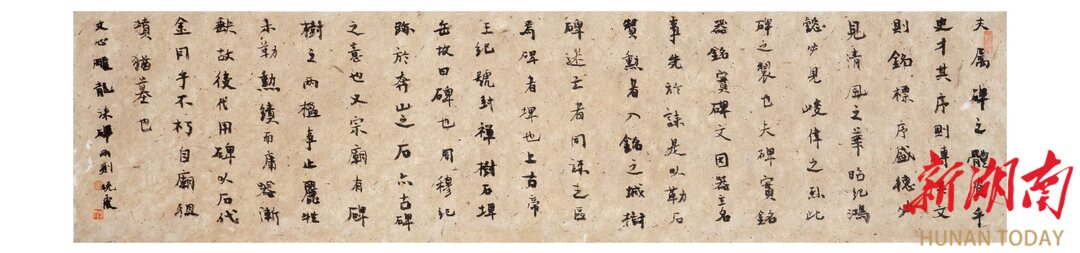 夫属碑之體資乎
史才其序則傳其文
則銘標序盛德必
見清風之華昭紀鴻
懿必見峻偉之烈此
碑之製也夫碑實銘
器銘實碑文因器立名
事先於誄是以勒石
贊勳者入銘之域樹
碑述亡者同誄之區
焉碑者埤也上古帝
王紀號封禪樹石埤
岳故曰碑也周穆紀
跡於弇山之石亦古碑
之意也又宗廟有碑
樹之兩楹事止麗牲
未勒勳績而庸器漸
缺故後代用碑以石代
金同乎不朽自廟徂
墳猶墓也
文心雕龍誄碑兩則
新湖南
HUNAN TODAY